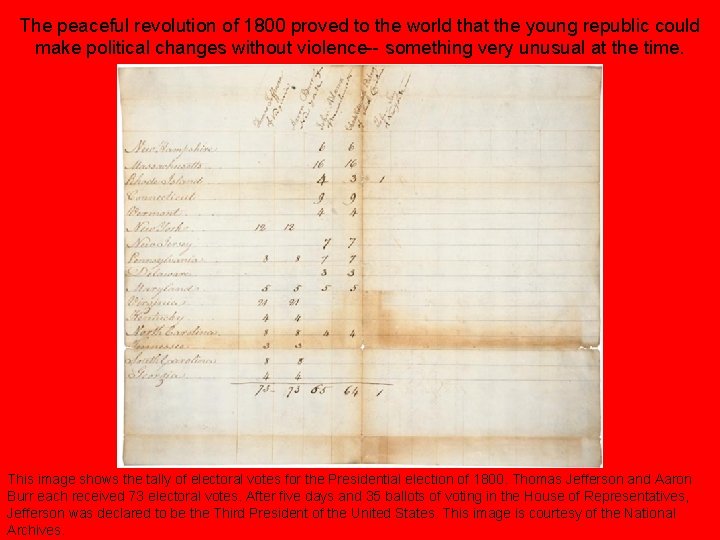 The peaceful revolution of 1800 proved to the world that the young republic could
make political changes without violence-- something very unusual at the time.
Thomas Jefferson Aaron Burr John Adams
New Hampshire 6 6
Massachusetts 16 16
Rhode Island 4 3 1
Connecticut 9 9
Vermont 4 4
New York 12 12
New Jersey 7 7
Pennsylvania 8 8 7 7
Delaware 3 3
Maryland 5 5 5 5
Virginia 21 21
Kentucky 4 4
North Carolina 8 8 4 4
Tennessee 3 3
South Carolina 8 8
Georgia 4 4
73 73 65 64 1
This image shows the tally of electoral votes for the Presidential election of 1800. Thomas Jefferson and Aaron
Burr each received 73 electoral votes. After five days and 35 ballots of voting in the House of Representatives,
Jefferson was declared to be the Third President of the United States. This image is courtesy of the National
Archives.